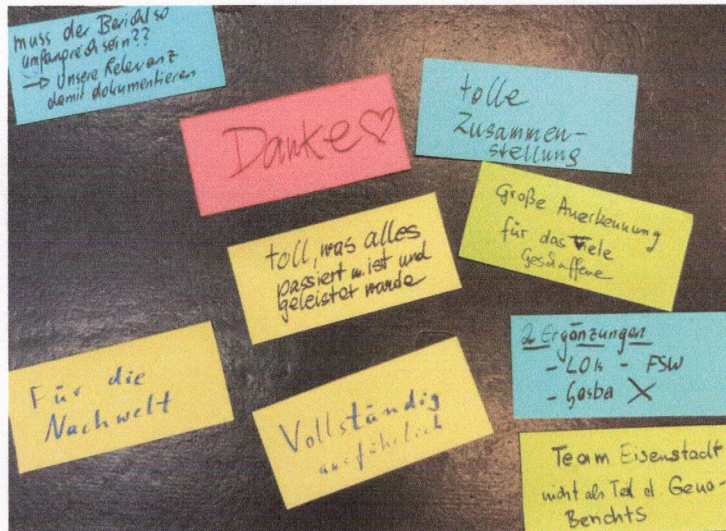 muss der Bericht so
umfangreich sein??
→ Unsere Relevanz
damit dokumentieren
Danke ♡
tolle
Zusammen-
stellung
Große Anerkennung
für das Viele
Geschaffene
toll, was alles
passiert ist und
geleistet wurde
2 Ergänzungen
- LOK - FSW
- Gesba X
Für die
Nachwelt
Vollständig
ausführlich
Team Eisenstadt
nicht als Teil d Geno-
Berichts